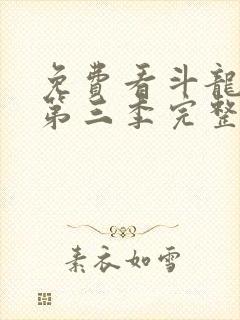 免費看斗龍
第三季完整
素衣如雪